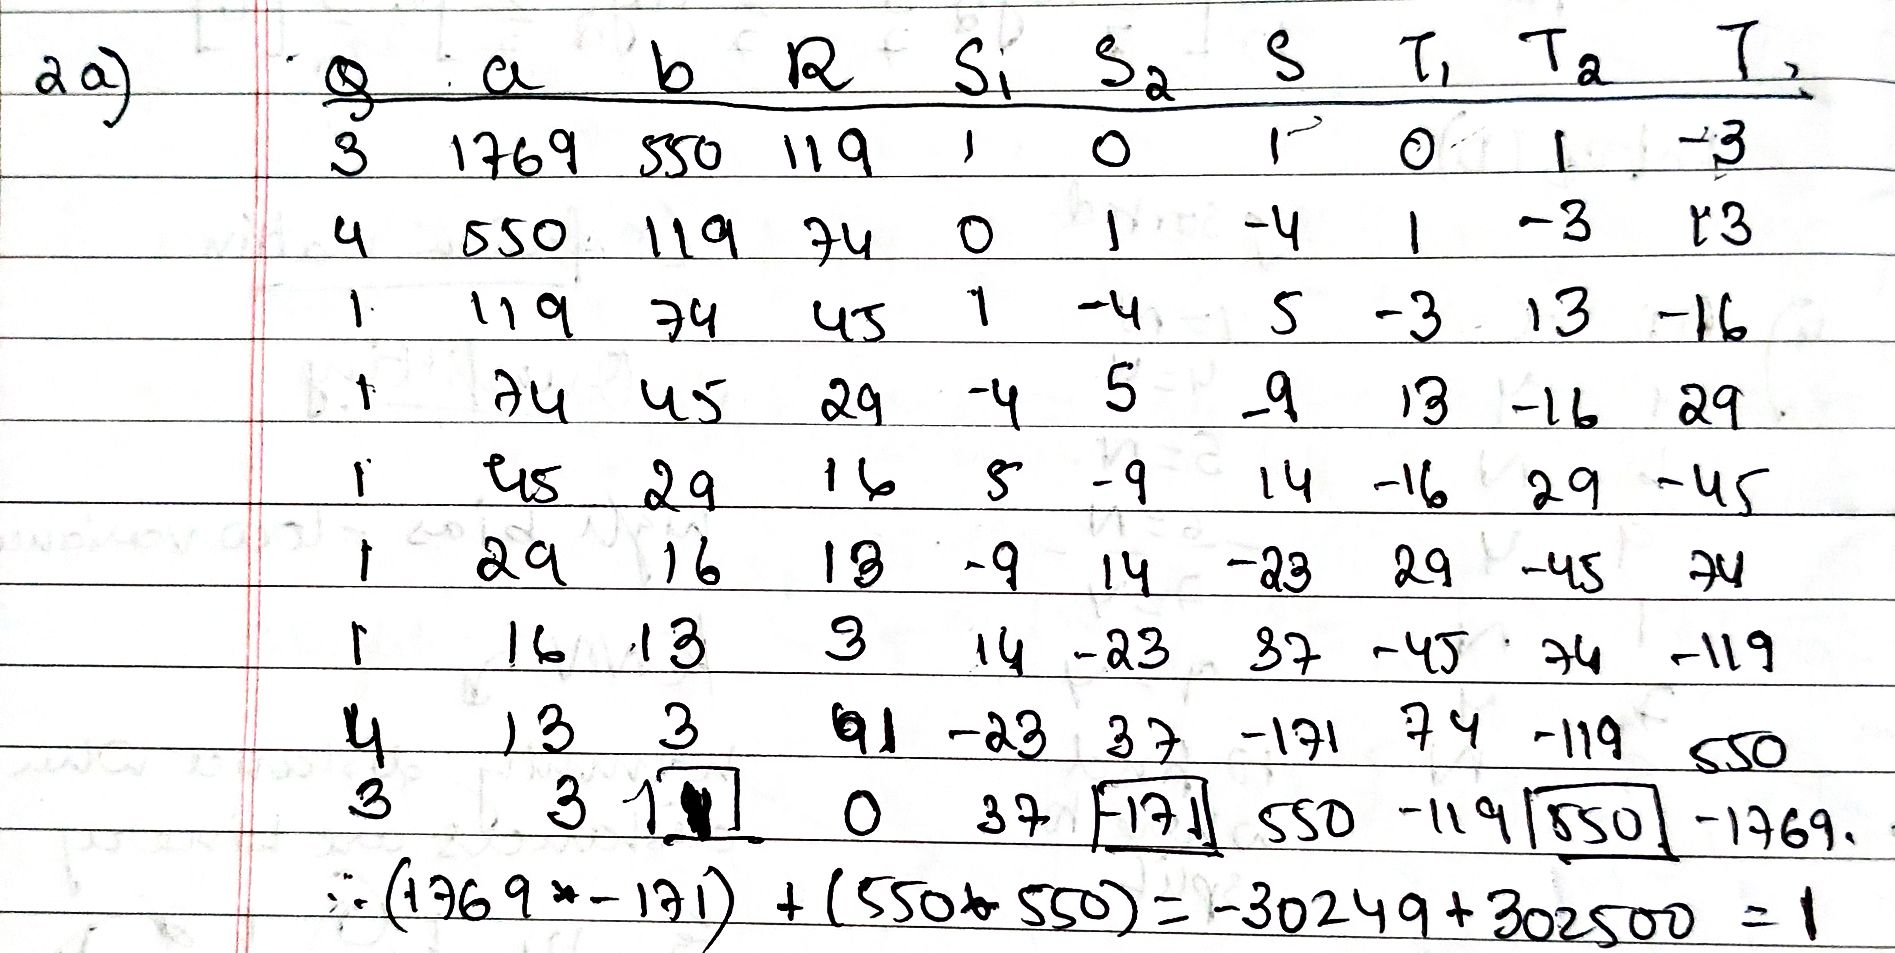 2a) Q a b R S1 S2 S T1 T2 T,
3 1769 550 119 1 0 1 0 1 -3
4 550 119 74 0 1 -4 1 -3 13
1 119 74 45 1 -4 5 -3 13 -16
1 74 45 29 -4 5 -9 13 -16 29
1 45 29 16 5 -9 14 -16 29 -45
1 29 16 13 -9 14 -23 29 -45 74
1 16 13 3 14 -23 37 -45 74 -119
4 13 3 1 -23 37 -171 74 -119 550
3 3 1 0 37 -171 550 -119 550 -1769.
∴ (1769 * -171) + (550 * 550) = -30249 + 302500 = 1